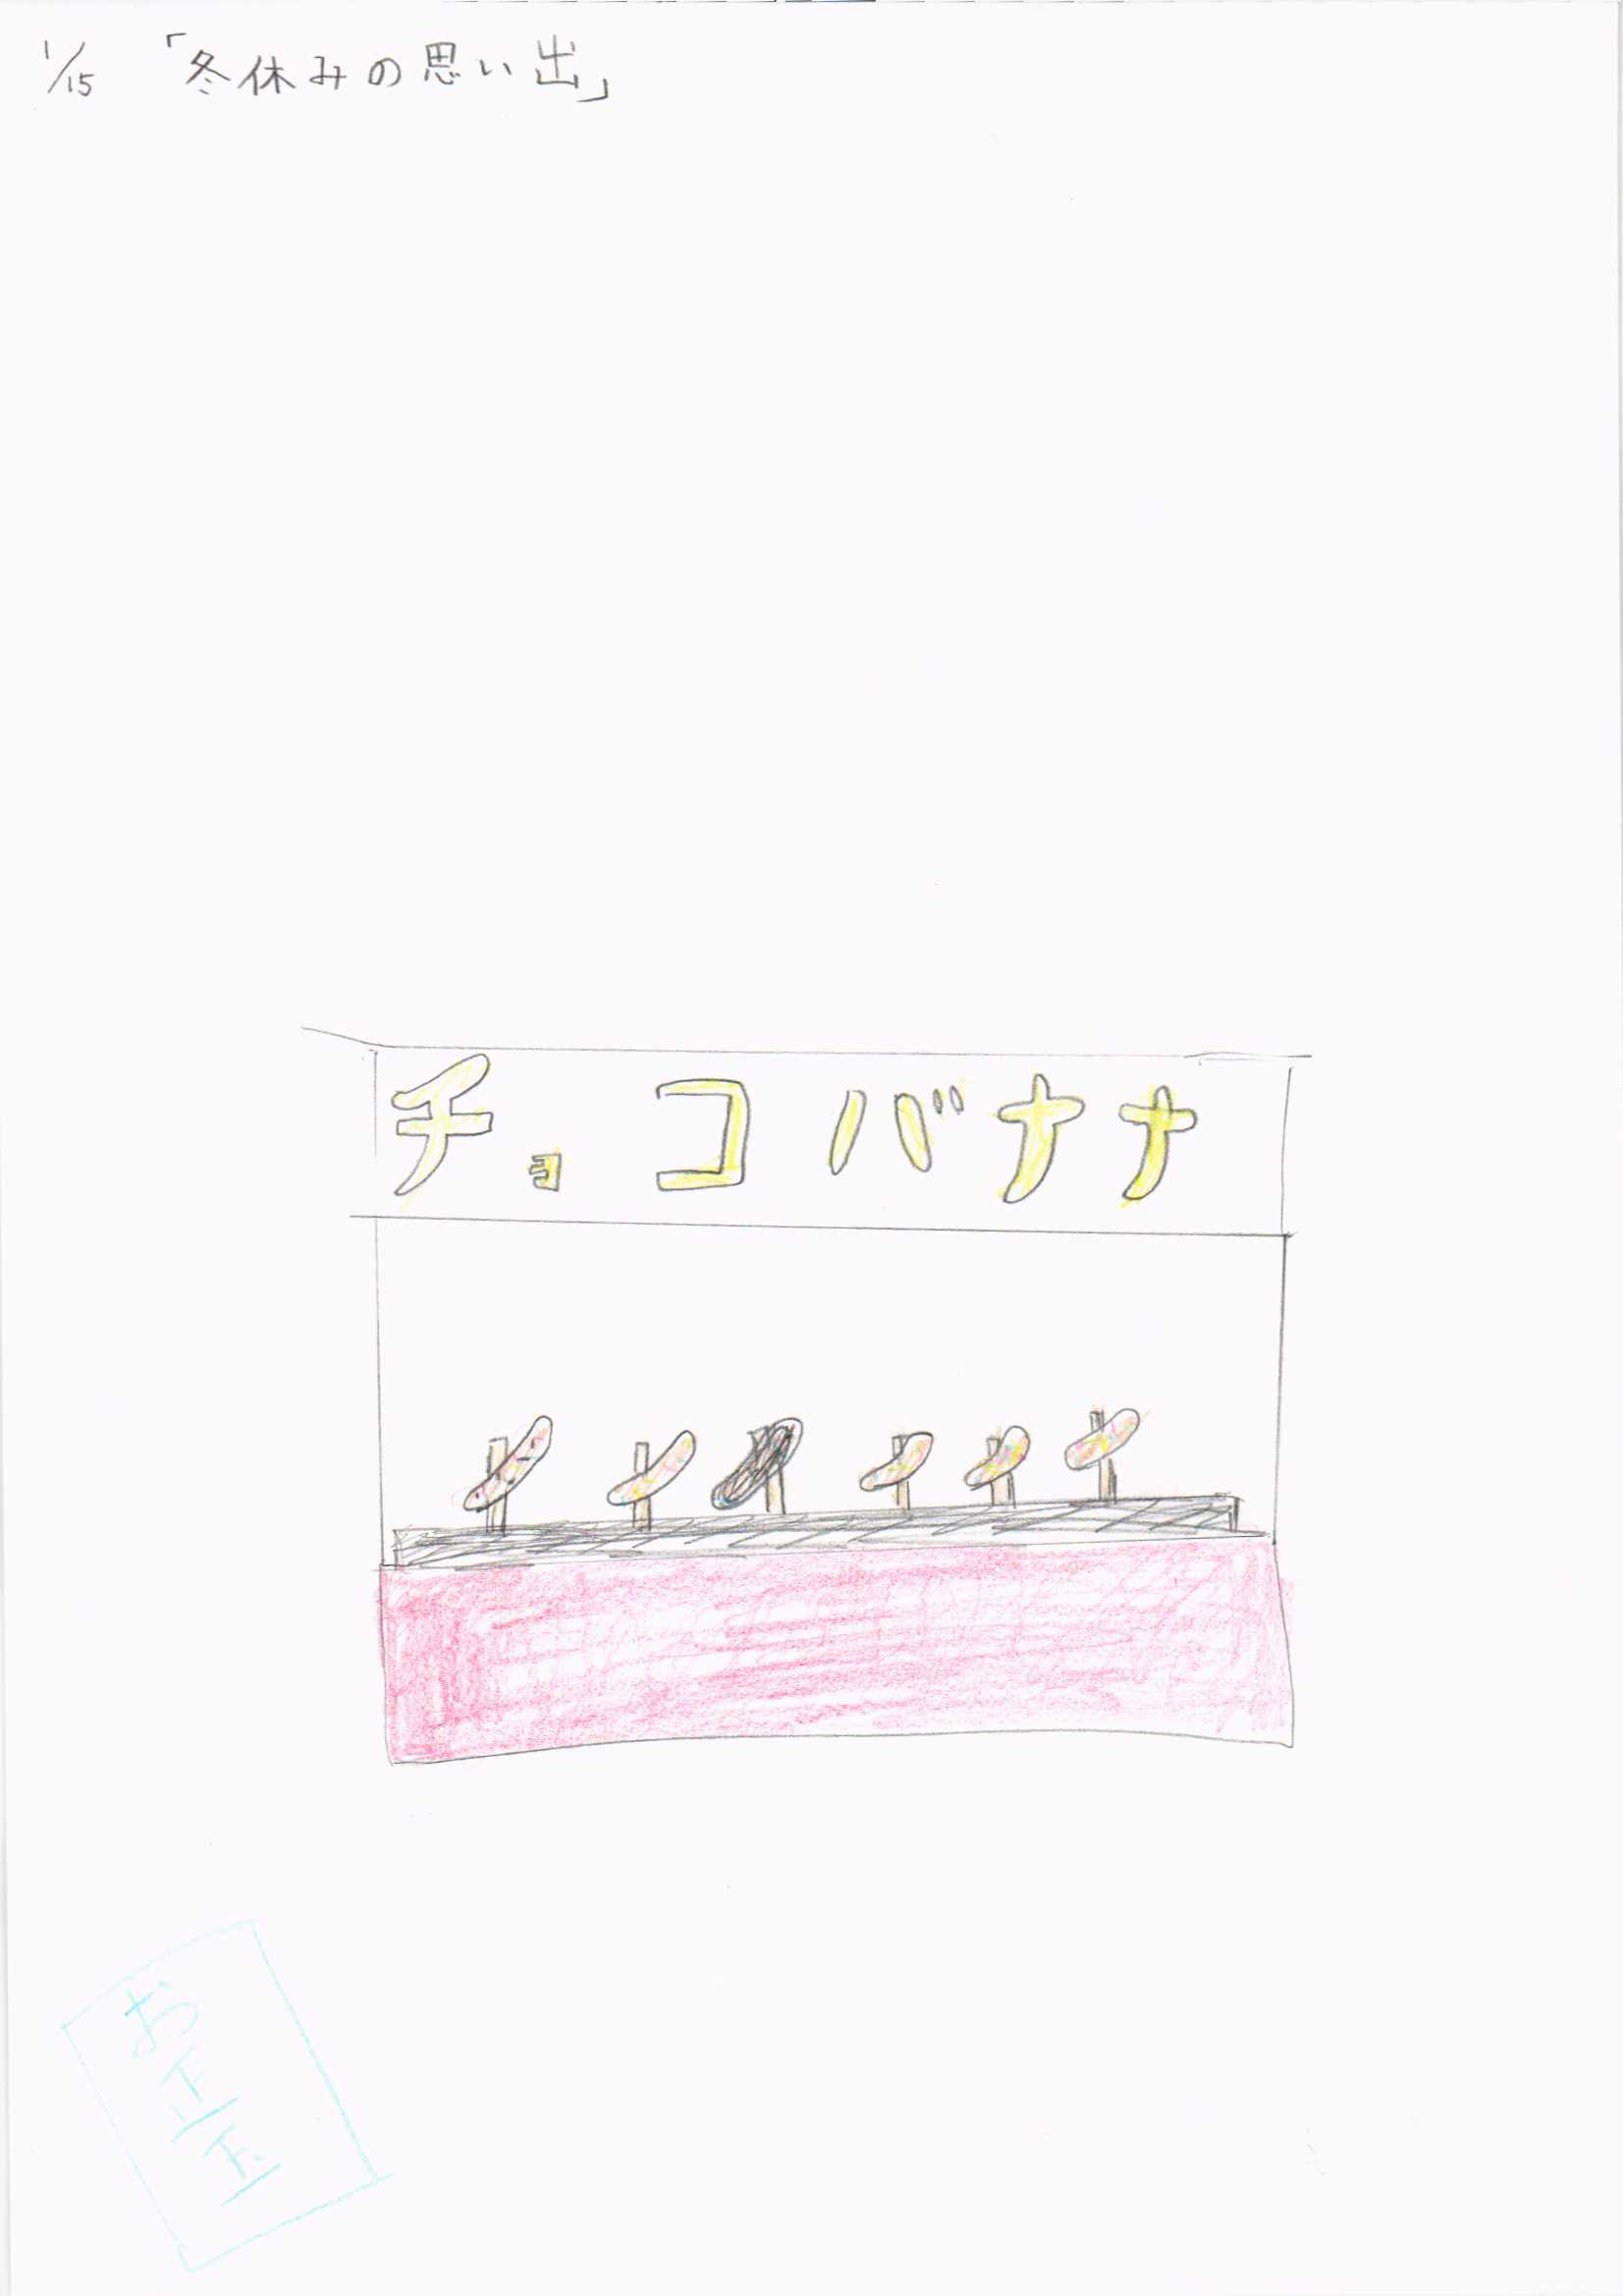 1/15 「冬休みの思い出」
チョコバナナ
お正玉